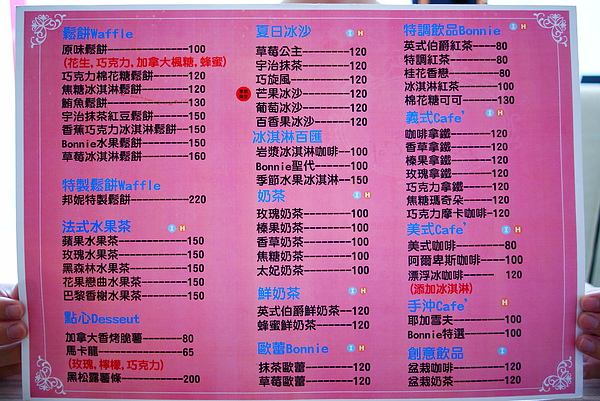 鬆餅Waffle
原味鬆餅------------100
(花生,巧克力,加拿大楓糖,蜂蜜)
巧克力棉花糖鬆餅------120
焦糖冰淇淋鬆餅------120
鮪魚鬆餅------------130
宇治抹茶紅豆鬆餅-----150
香蕉巧克力冰淇淋鬆餅--150
Bonnie水果鬆餅------150
草莓冰淇淋鬆餅------160
特製鬆餅Waffle
邦妮特製鬆餅---------220
法式水果茶 I H
蘋果水果茶----------150
玫瑰水果茶----------150
黑森林水果茶--------150
花果戀曲水果茶------150
巴黎香榭水果茶------150
點心Desseut
加拿大香烤脆薯------80
馬卡龍--------------65
(玫瑰,檸檬,巧克力)
黑松露薯條----------200
夏日冰沙 I H
草莓公主----------120
宇治抹茶----------120
巧旋風------------120
芒果冰沙----------120
葡萄冰沙----------120
百香果冰沙--------120
冰淇淋百匯
岩漿冰淇淋咖啡--100
Bonnie聖代------100
季節水果冰淇淋--150
奶茶 I H
玫瑰奶茶--------100
榛果奶茶--------100
香草奶茶--------100
焦糖奶茶--------100
太妃奶茶--------100
鮮奶茶 I H
英式伯爵鮮奶茶--120
蜂蜜鮮奶茶------120
歐蕾Bonnie I H
抹茶歐蕾--------120
草莓歐蕾--------120
特調飲品Bonnie I H
英式伯爵紅茶-----80
特調紅茶---------80
桂花香戀---------80
冰淇淋紅茶------100
棉花糖可可------130
義式Cafe' I H
咖啡拿鐵--------120
香草拿鐵--------120
榛果拿鐵--------120
玫瑰拿鐵--------120
巧克力拿鐵------120
焦糖瑪奇朵------120
巧克力摩卡咖啡-120
美式Cafe' I H
美式咖啡---------80
阿爾卑斯咖啡----100
漂浮冰咖啡------ 120
(添加冰淇淋)
手沖Cafe' H
耶加雪夫--------100
Bonnie特選------100
創意飲品 I
盆栽咖啡--------120
盆栽奶茶--------120